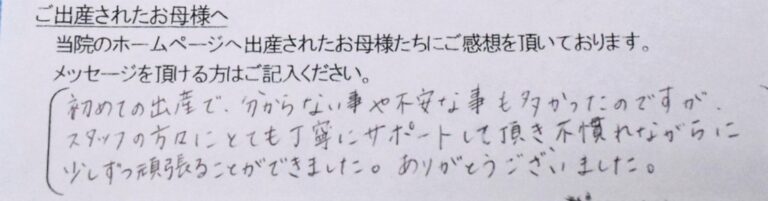 ご出産されたお母様へ
当院のホームページへ出産されたお母様たちにご感想を頂いております。
メッセージを頂ける方はご記入ください。
初めての出産で、分からない事や不安な事も多かったのですが、
スタッフの方々にとても丁寧にサポートして頂き不慣れながらに
少しずつ頑張ることができました。ありがとうございました。